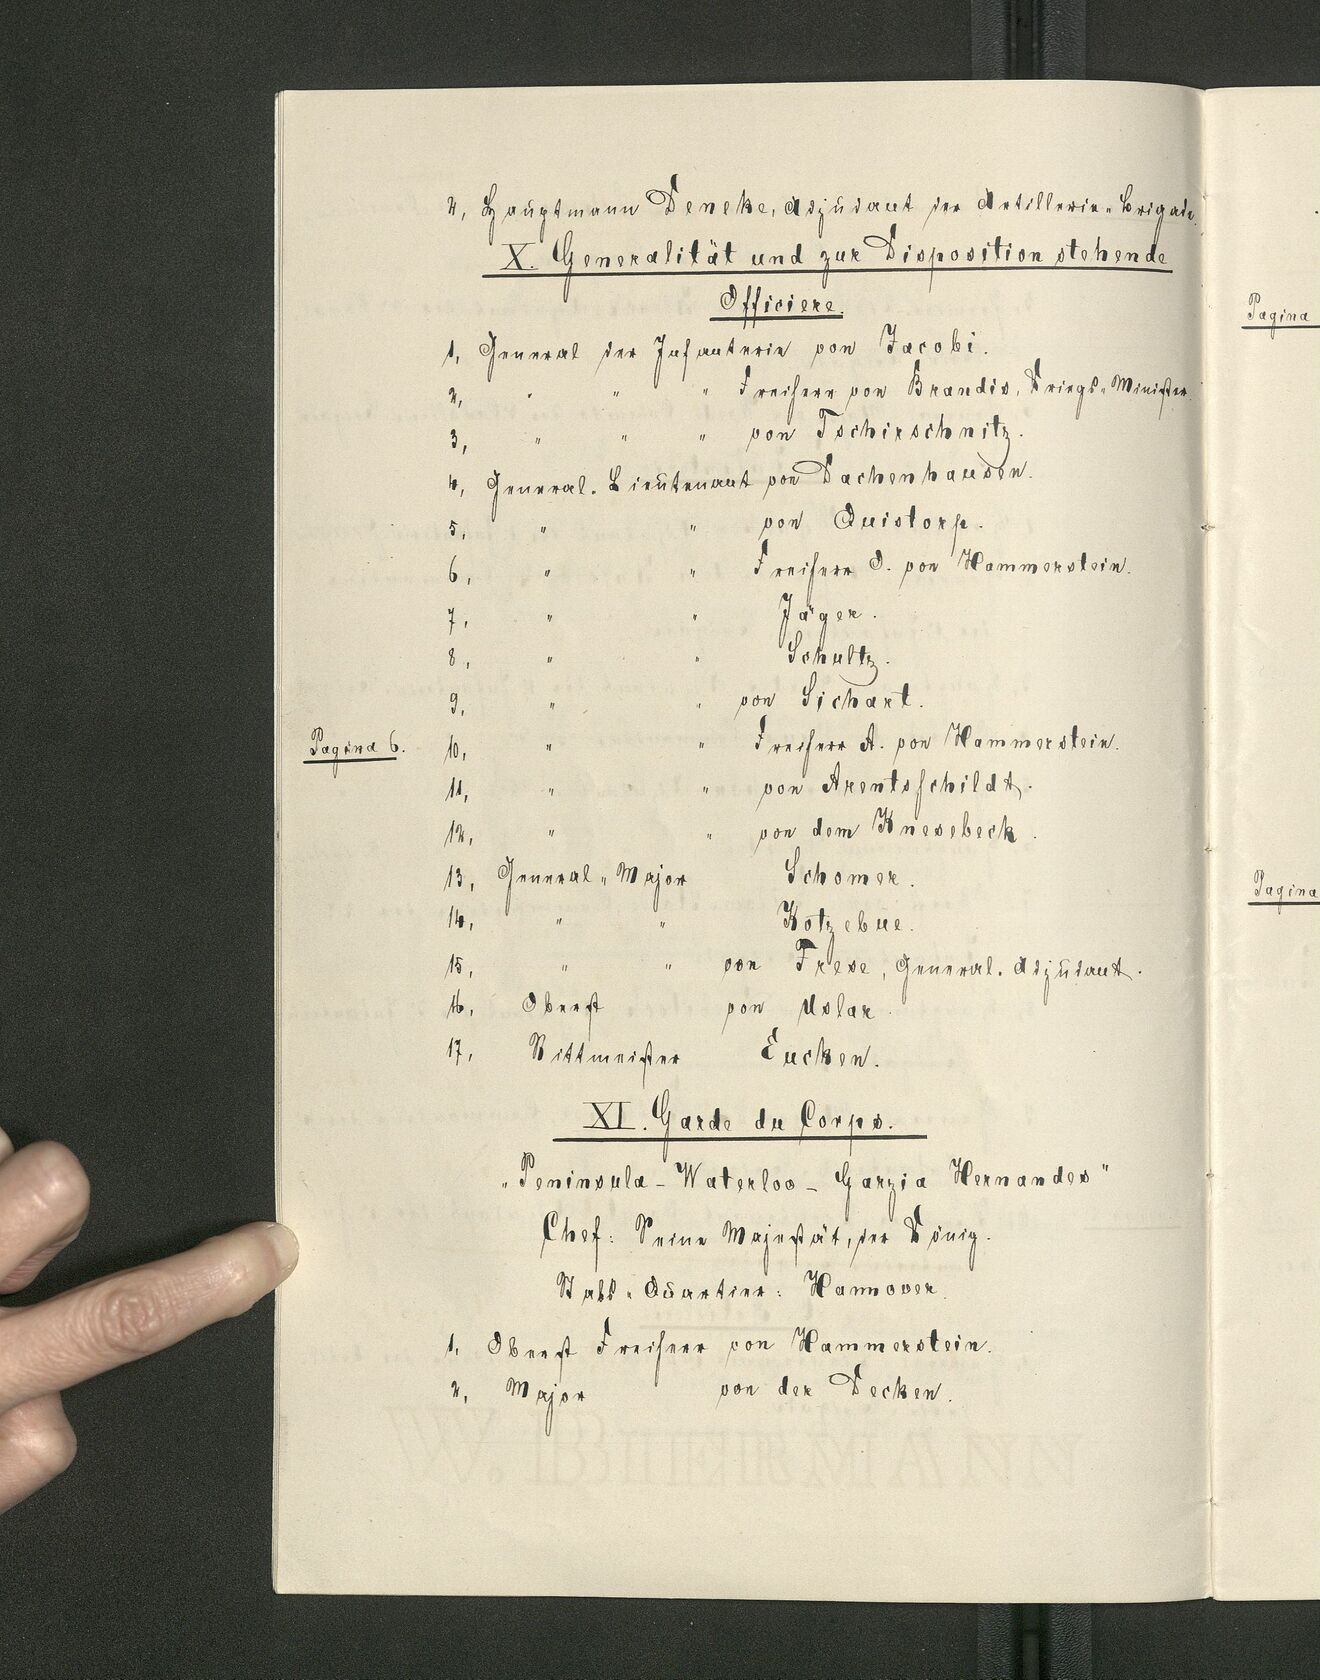 2, Hauptmann Deneke, Adjudant der Artillerie-Brigade.
X. Generalität und zur Disposition stehende
Officiere.
1, General der Infanterie von Jacobi.
2, " " " Freiherr von Brandis, Kriegs-Minister.
3, " " " von Tschirschnitz.
4, General-Lieutenant von Dachenhausen.
5, " " von Quistorp.
6, " " Freiherr O. von Hammerstein.
7, " " Jäger.
8, " " Schultz.
9, " " von Sichart.
Pagina 6. 10, " " Freiherr A. von Hammerstein.
11, " " von Arentsschildt.
12, " " von dem Knesebeck.
13, General-Major Schomer.
14, " " Kotzebue.
15, " " von Frese, General-Adjudant.
16, Oberst von Uslar.
17, Rittmeister Eucken.
XI. Garde du Corps.
„Peninsula - Waterloo - Garzia Hernandes"
Chef: Seine Majestät, der König.
Stabs-Quartier: Hannover.
1, Oberst Freiherr von Hammerstein.
2, Major von der Decken.
Pagina
Pagina